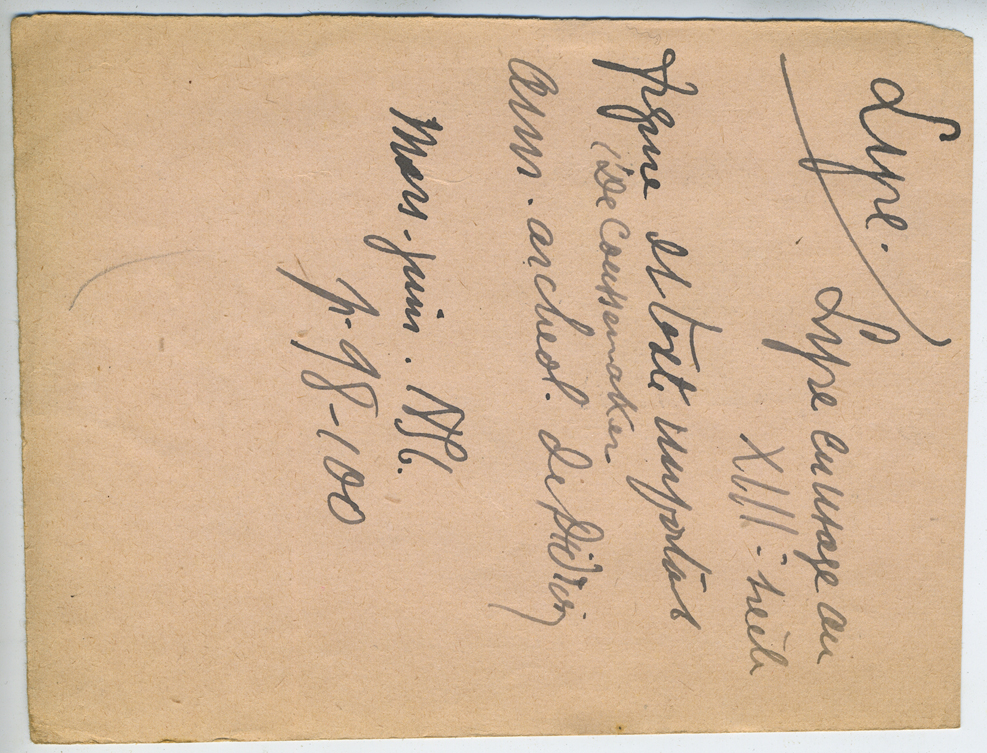 Lyre.
Lyre en usage au
XIII e siècle
figure et texte important
(De Coussemaker
ann. archeol. de Didron
Mars-juin.
p. 98-100